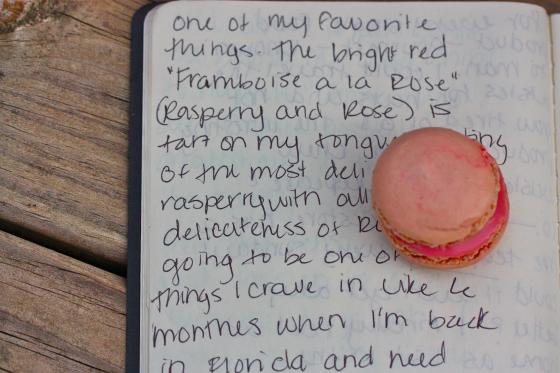 one of my favorite
things. The bright red
"Framboise a la Rose"
(Rasperry and Rose) is
tart on my
of the most
rasperry with all
delicateness of
going to be one of
things I crave in like 6
monthes when I'm back
in Florida and need